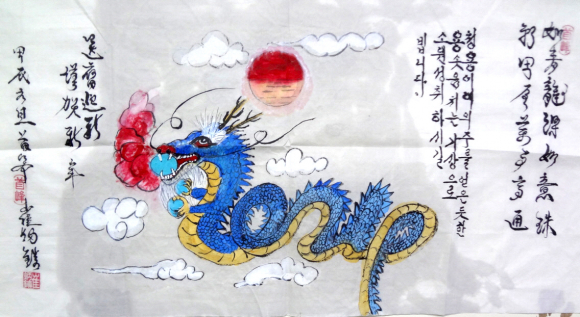 如青龍得如意珠
甲辰萬事亨通
청용이여의주를얻은듯한
용솟음치는기상으로
소원성취하시길
빕니다
送舊迎新
謹賀新年
甲辰元旦
崔